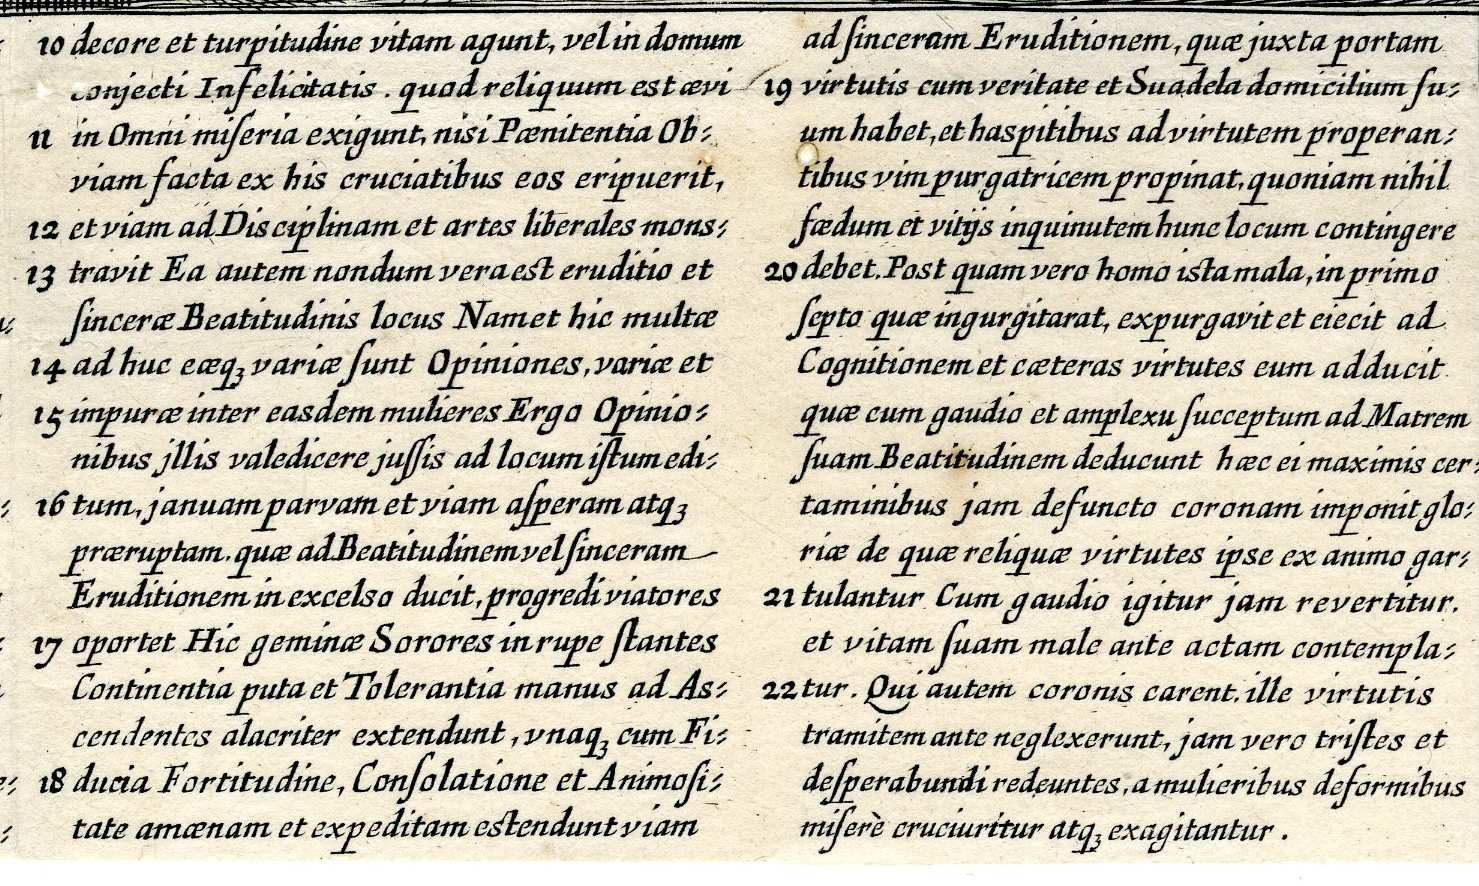 10 decore et turpitudine vitam agunt, vel in domum
conjecti Infelicitatis. quod reliquum est ævi
11 in Omni miſeria exigunt, nisi Pœnitentia Ob⸗
viam facta ex his cruciatibus eos eripuerit,
12 et viam ad Disciplinam et artes liberales mons⸗
13 travit Ea autem nondum vera est eruditio et
ſinceræ Beatitudinis locus Nam et hic multæ
14 ad huc eæqꝫ variæ ſunt Opiniones, variæ et
15 impuræ inter easdem mulieres Ergo Opinio⸗
nibus jllis valedicere juſſis ad locum iſtum edi⸗
16 tum, januam parvam et viam aſperam atqꝫ
præruptam. quæ ad Beatitudinem vel ſinceram
Eruditionem in excelso ducit, progredi viatores
17 oportet Hic geminæ Sorores in rupe ſtantes
Continentia puta et Tolerantia manus ad As⸗
cendentes alacriter extendunt, vnaqꝫ cum Fi⸗
18 ducia Fortitudine, Conſolatione et Animoſi⸗
tate amœnam et expeditam estendunt viam
ad ſinceram Eruditionem, quæ juxta portam
19 virtutis cum veritate et Suadela domicilium ſu⸗
um habet, et haspitibus ad virtutem properan⸗
tibus vim purgatricem propinat, quoniam nihil
fœdum et vitijs inquinutem hunc locum contingere
20 debet. Post quam vero homo ista mala, in primo
ſepto quæ ingurgitarat, expurgavit et eiecit ad
Cognitionem et cæteras virtutes eum adducit
quæ cum gaudio et amplexu ſucceptum ad Matrem
ſuam Beatitudinem deducunt hæc ei maximis cer⸗
taminibus jam defuncto coronam imponit glo⸗
riæ de quæ reliquæ virtutes ipse ex animo gar⸗
21 tulantur Cum gaudio igitur jam revertitur.
et vitam ſuam male ante actam contempla⸗
22 tur. Qui autem coronis carent. ille virtutis
tramitem ante neglexerunt, jam vero triſtes et
deſperabundi redeuntes, a mulieribus deformibus
miſerè cruciuritur atqꝫ exagitantur.